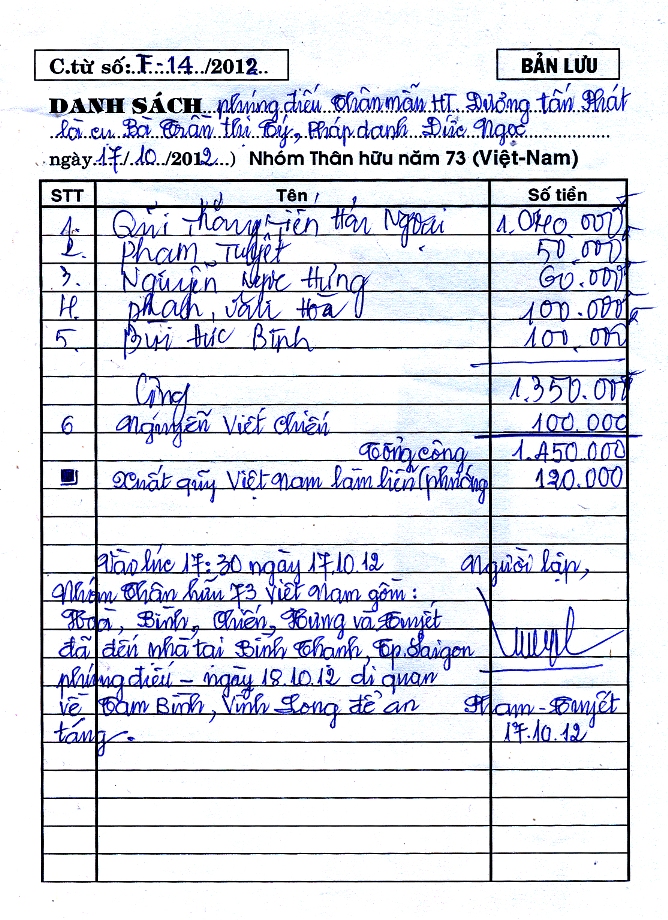 C.từ số: F-14 /2012
BẢN LƯU
DANH SÁCH phúng điếu Thân mẫu HT. Dưỡng tấn Phát
là cụ Bà Trần thị Tý, Pháp danh Diệc Ngọc
ngày 17/10/2012) Nhóm Thân hữu năm 73 (Việt-Nam)
STT Tên Số tiền
1. Qũi Thăng Tiến Hải Ngoại 1.040.000đ
2. Phạm Tuyết 50.000đ
3. Nguyễn Ngọc Hưng 60.000đ
4. Phan, Văn Hoà 100.000đ
5. Bùi đức Bình 100.000đ
Cộng 1.350.000đ
6 Nguyễn Viết Chiến 100.000
Tổng cộng 1.450.000
Xuất qũy Việt Nam làm liễn (phướng 120.000
Vào lúc 17:30 ngày 17.10.12 Người lập,
Nhóm Thân hữu 73 Việt Nam gồm:
Hoà, Bình, Chiến, Hưng và Tuyết
đã đến nhà tại Bình Thạnh, Tp. Saigon
phúng điếu - ngày 18.10.12 di quan
về Tam Bình, Vĩnh Long để an Phạm-Tuyết
táng. 17.10.12